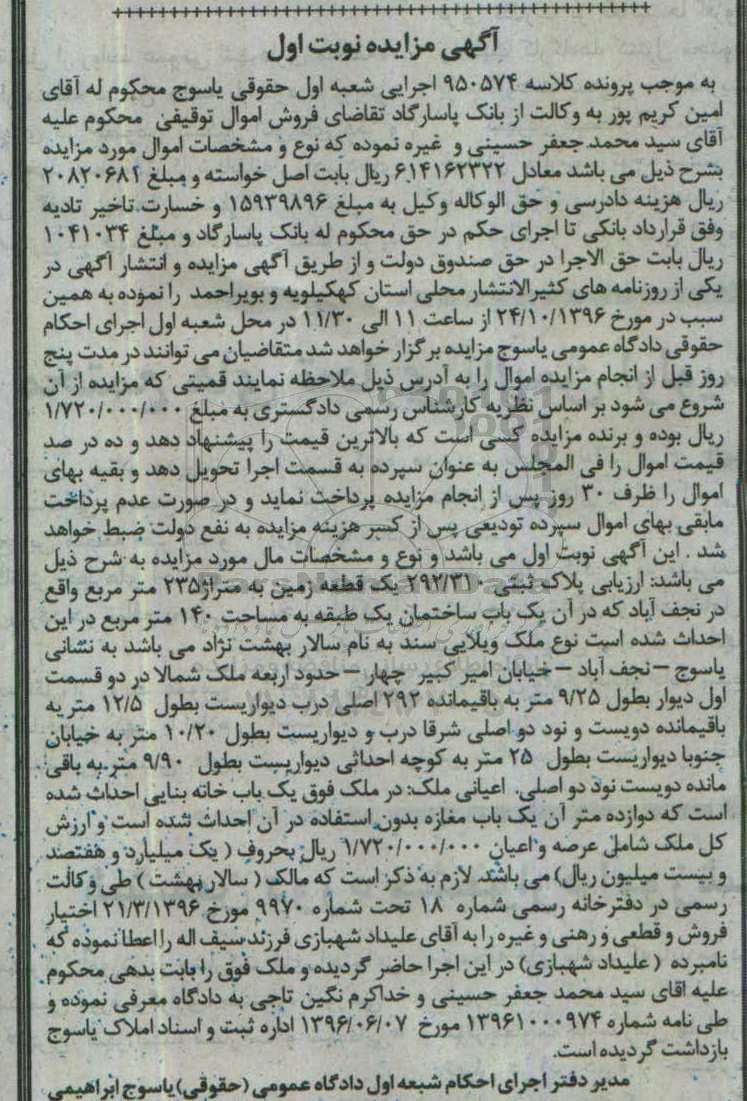 آگهی مزایده نوبت اول
به موجب پرونده کلاسه ۹۵۰۵۷۴ اجرایی شعبه اول حقوقی یاسوج محکوم له آقای
امین کریم پور به وکالت از بانک پاسارگاد تقاضای فروش اموال توقیفی محکوم علیه
آقای سید محمد جعفر حسینی و غیره نموده که نوع و مشخصات اموال مورد مزایده
بشرح ذیل می باشد معادل ۶۱۴۱۶۲۳۲۲ ریال بابت اصل خواسته و مبلغ ۲۰۸۲۰۶۸۱
ریال هزینه دادرسی و حق الوکاله وکیل به مبلغ ۱۵۹۳۹۸۹۶ و خسارت تاخیر تادیه
وفق قرارداد بانکی تا اجرای حکم در حق محکوم له بانک پاسارگاد و مبلغ ۱۰۴۱۰۳۴
ریال بابت حق الاجرا در حق صندوق دولت و از طریق آگهی مزایده و انتشار آگهی در
یکی از روزنامه های کثیرالانتشار محلی استان کهکیلویه و بویراحمد را نموده به همین
سبب در مورخ ۲۴/۱۰/۱۳۹۶ از ساعت ۱۱ الی ۱۱/۳۰ در محل شعبه اول اجرای احکام
حقوقی دادگاه عمومی یاسوج مزایده برگزار خواهد شد متقاضیان می توانند در مدت پنج
روز قبل از انجام مزایده اموال را به آدرس ذیل ملاحظه نمایند قمیتی که مزایده از آن
شروع می شود بر اساس نظریه کارشناس رسمی دادگستری به مبلغ ۱/۷۲۰/۰۰۰/۰۰۰
ریال بوده و برنده مزایده کسی است که بالاترین قیمت را پیشنهاد دهد و ده در صد
قیمت اموال را فی المجلس به عنوان سپرده به قسمت اجرا تحویل دهد و بقیه بهای
اموال را ظرف ۳۰ روز پس از انجام مزایده پرداخت نماید و در صورت عدم پرداخت
مابقی بهای اموال سپرده تودیعی پس از کسر هزینه مزایده به نفع دولت ضبط خواهد
شد . این آگهی نوبت اول می باشد و نوع و مشخصات مال مورد مزایده به شرح ذیل
می باشد: ارزیابی پلاک ثبتی ۲۹۲/۳۱۰ یک قطعه زمین به متراژ ۲۳۵ متر مربع واقع
در نجف آباد که در آن یک باب ساختمان یک طبقه به مساحت ۱۴۰ متر مربع در این
احداث شده است نوع ملک ویلایی سند به نام سالار بهشت نژاد می باشد به نشانی
یاسوج – نجف آباد – خیابان امیر کبیر چهار – حدود اربعه ملک شمالا در دو قسمت
اول دیوار بطول ۹/۲۵ متر به باقیمانده ۲۹۲ اصلی درب دیواریست بطول ۱۲/۵ متر به
باقیمانده دویست و نود دو اصلی شرقا درب و دیواریست بطول ۱۰/۲۰ متر به خیابان
جنوبا دیواریست بطول ۲۵ متر به کوچه احداثی دیواریست بطول ۹/۹۰ متر به باقی
مانده دویست نود دو اصلی. اعیانی ملک: در ملک فوق یک باب خانه بنایی احداث شده
است که دوازده متر آن یک باب مغازه بدون استفاده در آن احداث شده است و ارزش
کل ملک شامل عرصه و اعیان ۱/۷۲۰/۰۰۰/۰۰۰ ریال بحروف ( یک میلیارد و هفتصد
و بیست میلیون ریال) می باشد. لازم به ذکر است که مالک ( سالار بهشت ) طی وکالت
رسمی در دفترخانه رسمی شماره ۱۸ تحت شماره ۹۹۷۰ مورخ ۲۱/۳/۱۳۹۶ اختیار
فروش و قطعی و رهنی و غیره را به آقای علیداد شهبازی فرزند سیف اله را اعطا نموده که
نامبرده ( علیداد شهبازی) در این اجرا حاضر گردیده و ملک فوق را بابت بدهی محکوم
علیه اقای سید محمد جعفر حسینی و خداکرم نگین تاجی به دادگاه معرفی نموده و
طی نامه شماره ۱۳۹۶۱۰۰۰۹۷۴ مورخ ۱۳۹۶/۰۶/۰۷ اداره ثبت و اسناد املاک یاسوج
بازداشت گردیده است.
مدیر دفتر اجرای احکام شعبه اول دادگاه عمومی (حقوقی) یاسوج ابراهیمی